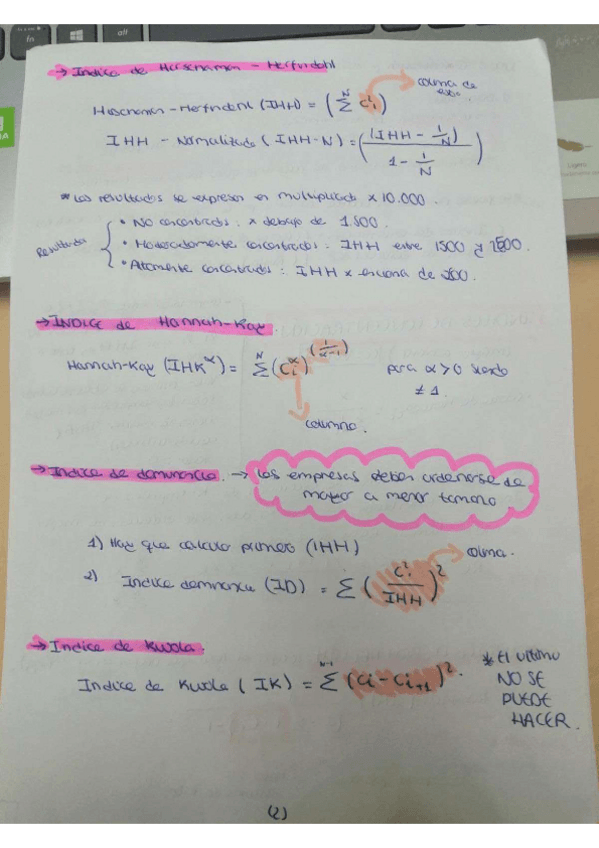 → Indice de Herschamen - Herfindahl
columna de
Herschamen-Herfindahl (IHH) = (∑ᴺ Cᵢ²)
IHH - Normalizado (IHH-N) = ((IHH - 1/N) / (1 - 1/N))
* Los resultados se expresan en multiplicado x 10.000.
Resultados
• No concentrados : x debajo de 1.500
• Moderadamente concentrados : IHH entre 1500 y 2500.
• Altamente concentrados : IHH x encima de
→ INDICE de Hannah-Kay
Hannah-Kay (IHKᵅ) = ∑ᴺ (Cᵢᵅ)^(1/(α-1)) para α > 0 siendo
≠ 1.
columna.
→ Indice de dominancia. → Las empresas deben ordenarse de
mayor a menor tamaño
1) Hay que calcular primero (IHH)
columna.
2) Indice dominancia (ID) = ∑ (Cᵢ² / IHH)²
→ Indice de Kwola.
Indice de Kwola (IK) = ∑ᴺ⁻¹ (Ci - Ci+1)².
* El ultimo
NO SE
PUEDE
HACER.
(2)